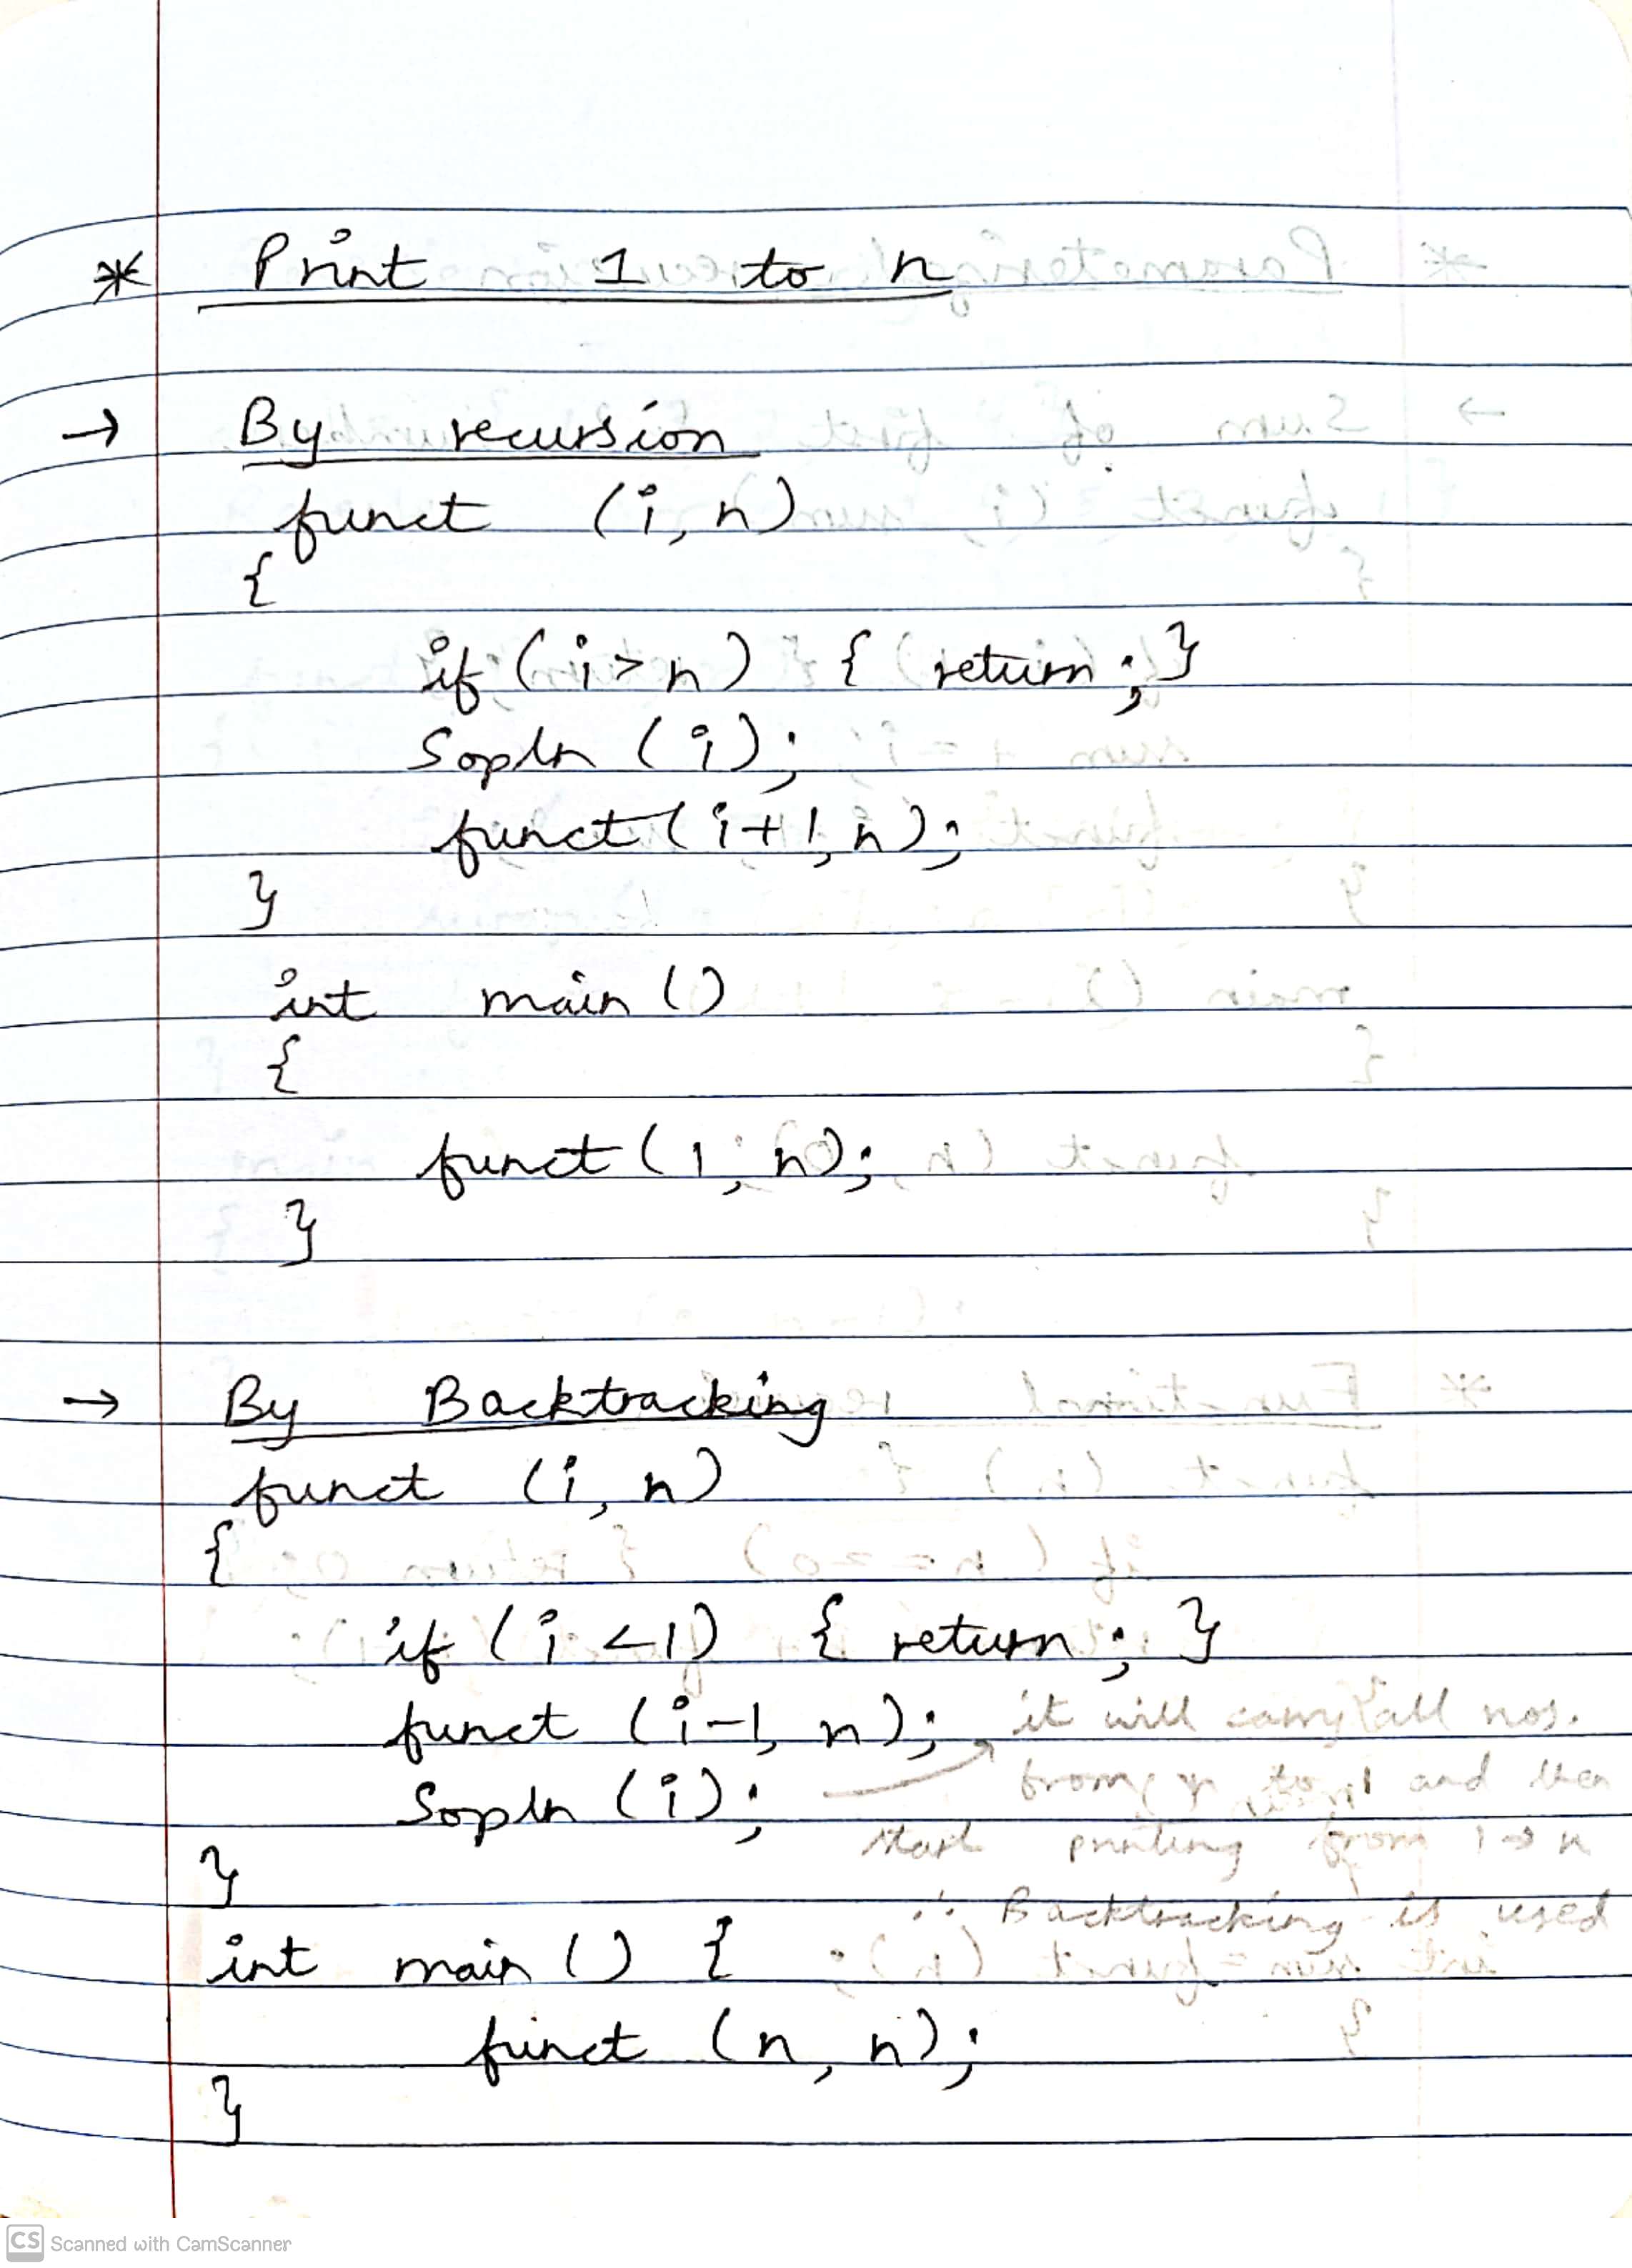 * Print 1 to n
→ By recursion
funct (i, n)
{
if (i > n) { return ; }
Sopln (i);
funct (i+1, n);
}
int main ()
{
funct (1, n);
}
→ By Backtracking
funct (i, n)
{
if (i < 1) { return ; }
funct (i-1, n); it will carry all nos.
Sopln (i); from n to 1 and then
start printing from 1 → n
}
∴ Backtracking is used
int main () {
funct (n, n);
}
CS Scanned with CamScanner